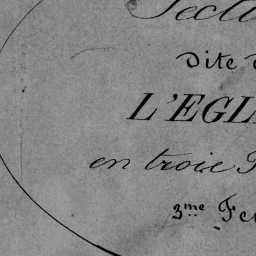 Secti
dite d
L'EGLI
en trois F
3me Feu